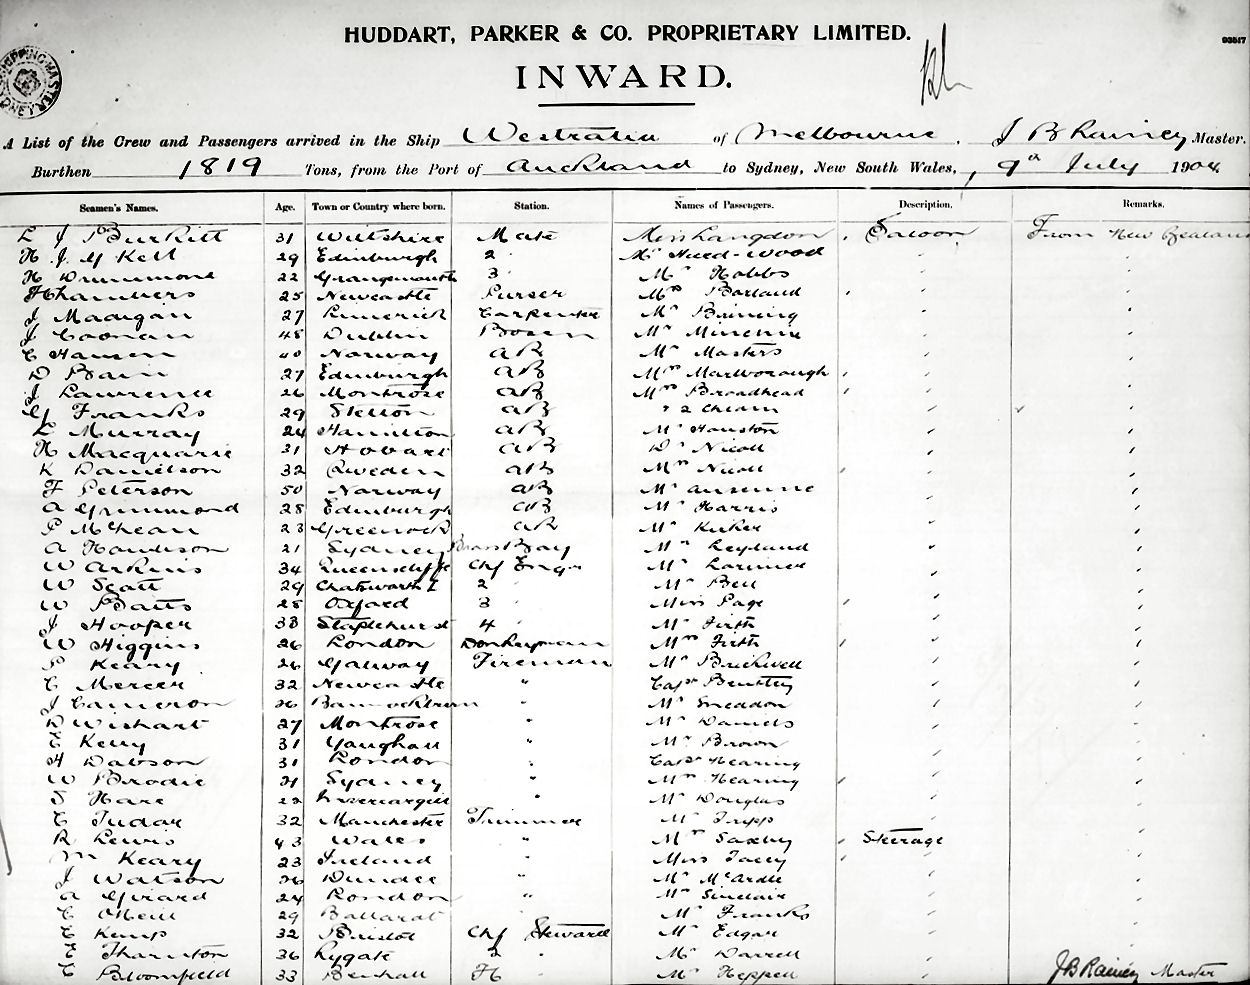 HUDDART, PARKER & CO. PROPRIETARY LIMITED.
93517
INWARD.
SHIPPING MASTER SYDNEY
A List of the Crew and Passengers arrived in the Ship Westralia of Melbourne, J B Rainey Master.
Burthen 1819 Tons, from the Port of Auckland to Sydney, New South Wales, 9th July 1904.
Seamen's Names. Age. Town or Country where born. Station. Names of Passengers. Description. Remarks.
L J Burkitt 31 Wiltshire Mate Miss Langdon Saloon From New Zealand
H. J. G Kell 29 Edinburgh 2 " Mr Hurd-Wood " "
H Drummond 22 Grangemouth 3 " Mr Hobbs " "
Chambers 25 Newcastle Purser Mrs Borland " "
J Madigan 27 Limerick Carpenter Mr Brining " "
J Coonan 48 Dublin Bosen Mr Minchin " "
C Hansen 40 Norway AB Mr Masters " "
D Bain 27 Edinburgh AB Mrs Marlborough " "
J Lawrence 26 Montrose AB Mrs Broadhead " "
G Franks 29 Stetton AB " 2 Chldn " "
L Murray 24 Hamilton AB Mr Houston " "
H Macquarie 31 Hobart AB Dr Nicoll " "
K Danielson 32 Sweden AB Mrs Nicoll " "
F Peterson 50 Norway AB Mr " "
A Grimmond 28 Edinburgh AB Mr Harris " "
P McLean 23 Greenock AB Mr Kirker " "
A Harrison 21 Sydney Brass Boy Mr Leyland " "
W Arkins 34 Queenscliffe Chf Engr Mr Larimer " "
W Scott 29 Chatsworth I 2 " Mr Bell " "
W Batts 28 Oxford 3 " Miss Page " "
J Hooper 38 Staplehurst 4 " Mr Firth " "
W Higgins 26 London Donkeyman Mrs Firth " "
P Keary 26 Galway Fireman Mr Brickwell " "
C Mercer 32 Newcastle " Capt Bentley " "
J Cameron 36 Bannockburn " Mr Sneddon " "
D Wishart 27 Montrose " Mr Daniels " "
E Kelly 31 Vaughan " Mr Brown " "
H Dawson 31 London " Capt Hearing " "
W Brodie 21 Sydney " Mrs Hearing " "
S Hare 22 Invercargill " Mr Douglas " "
C Tudor 32 Manchester Trimmer Mr Tripp " "
R Lewis 43 Wales " Mrs Saxby Steerage "
M Keary 23 Ireland " Miss " "
J Watson 26 Dundee " Mr McArdle " "
A Girard 24 London " Mr Sinclair " "
C O'Neill 29 Ballarat " Mr Franks " "
C Kemp 32 Bristol Chf Steward Mr Edgar " "
E Thornton 36 Rygate 2 " Mr Darrell " "
C Bloomfield 33 Benhall F " Mr Heppell " J B Rainey Master